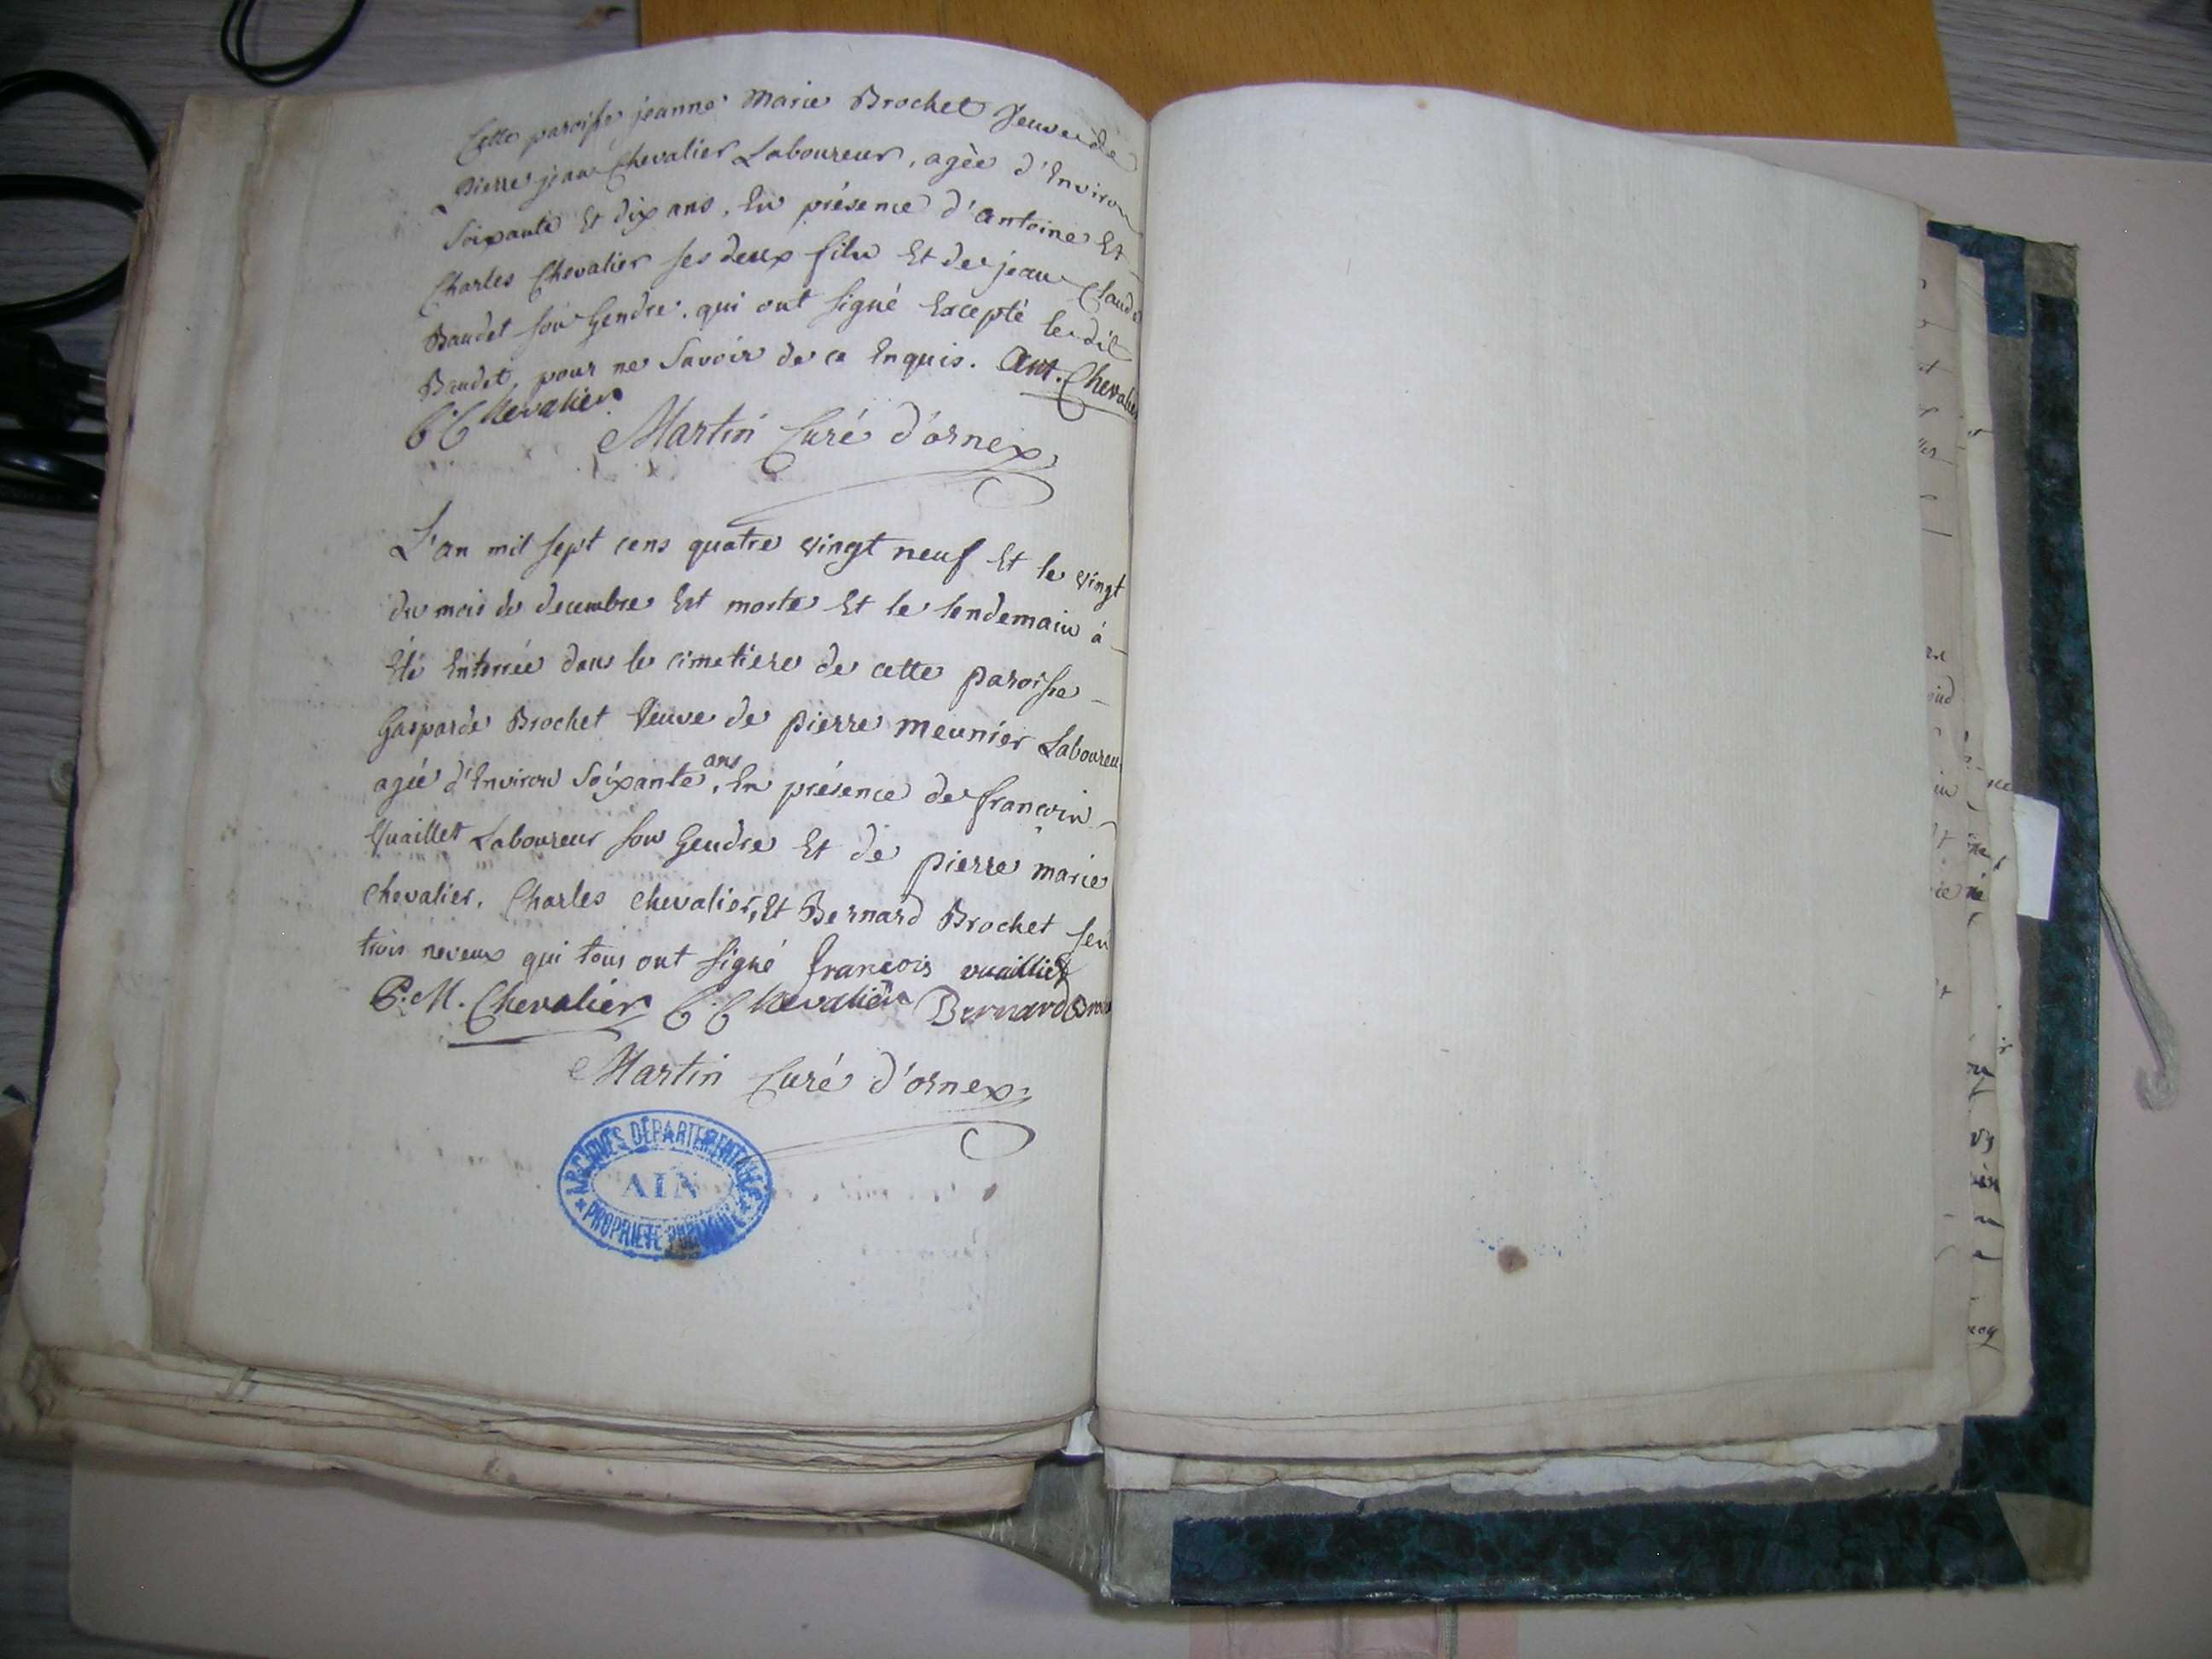 Cette paroisse jeanne Marie Brochet Veuve de
Pierre jean Chevalier Laboureur, agèe d'Environ
Soixante Et dix ans, En présence d'antoine Et
Charles Chevalier ses deux fils Et de jean Claude
Baudet son Gendre, qui ont signé Excepté le dit
Baudet, pour ne Savoir de ce Enquis. Ant. Chevalier
C Chevalier
Martin Curé d'ornex
L'an mil sept cens quatre vingt neuf Et le vingt
du mois de decembre Est morte Et le lendemain à
Eté Enterrée dans le cimetiere de cette paroisse
Gasparde Brochet Veuve de pierre meunier Laboureur
agée d'Environ Soixante ans, En présence de françois
Vuaillet Laboureur son Gendre Et de pierre marie
chevalier, Charles chevalier, Et Bernard Brochet ses
trois neveux qui tous ont signé françois vuaillet
P. M. Chevalier C Chevalier Bernard
Martin Curé d'ornex
ARCHIVES DÉPARTEMENTALES
AIN
PROPRIÉTÉ PUBLIQUE